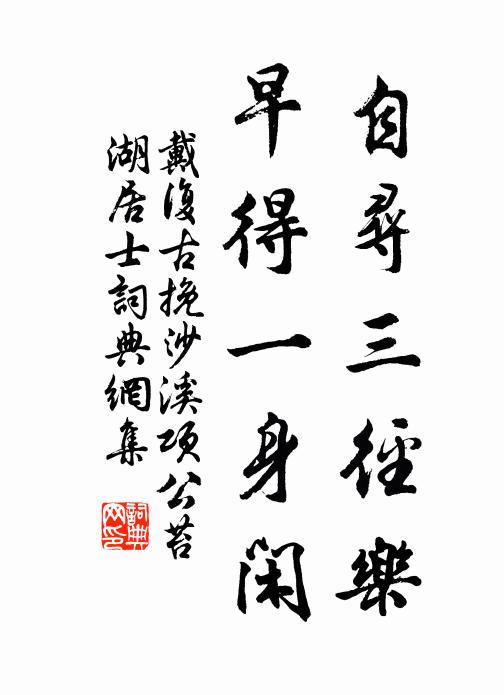 自尋三徑樂
早得一身閑
戴復古挽沙溪項公苔
湖居士詞典網集
詞典
网印